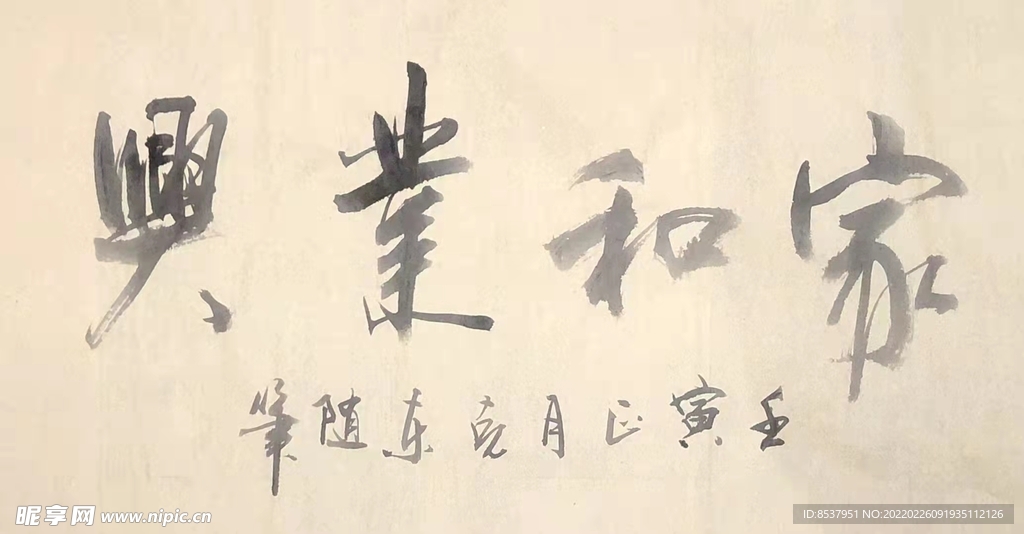 家和業興
壬寅正月克东随筆
昵享网 www.nipic.cn
ID:8537951 NO:20220226091935112126